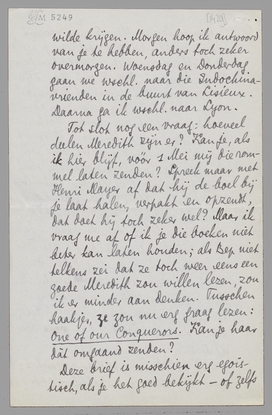 5249
wilde krijgen. Morgen hoop ik antwoord
van je te hebben, anders toch zeker
overmorgen. Woensdag en Donderdag
gaan we wschl. naar die Indochina-
vrienden in de buurt van Lisieux.
Daarna ga ik wschl. naar Lyon.
Tot slot nog een vraag: hoeveel
deelen Meredith zijn er? Kan je, als
ik hier blijf, vóór 1 Mei mij die rom-
mel laten zenden? Spreek maar met
Henri Mayer af dat hij de boel bij
je laat halen, verpakt en opzendt,
dat doet hij toch zeker wel? Maar ik
vraag me af of ik je die boeken niet
beter kan laten houden; als Bep niet
telkens zei dat ze toch weer eens een
goede Meredith zou willen lezen, zou
ik er minder aan denken. Tusschen
haakjes, ze zou nu erg graag lezen:
One of our Conquerors. Kan je haar
dàt omgaand zenden?
Deze brief is misschien erg egoïs-
tisch, als je het goed bekijkt – of zelfs